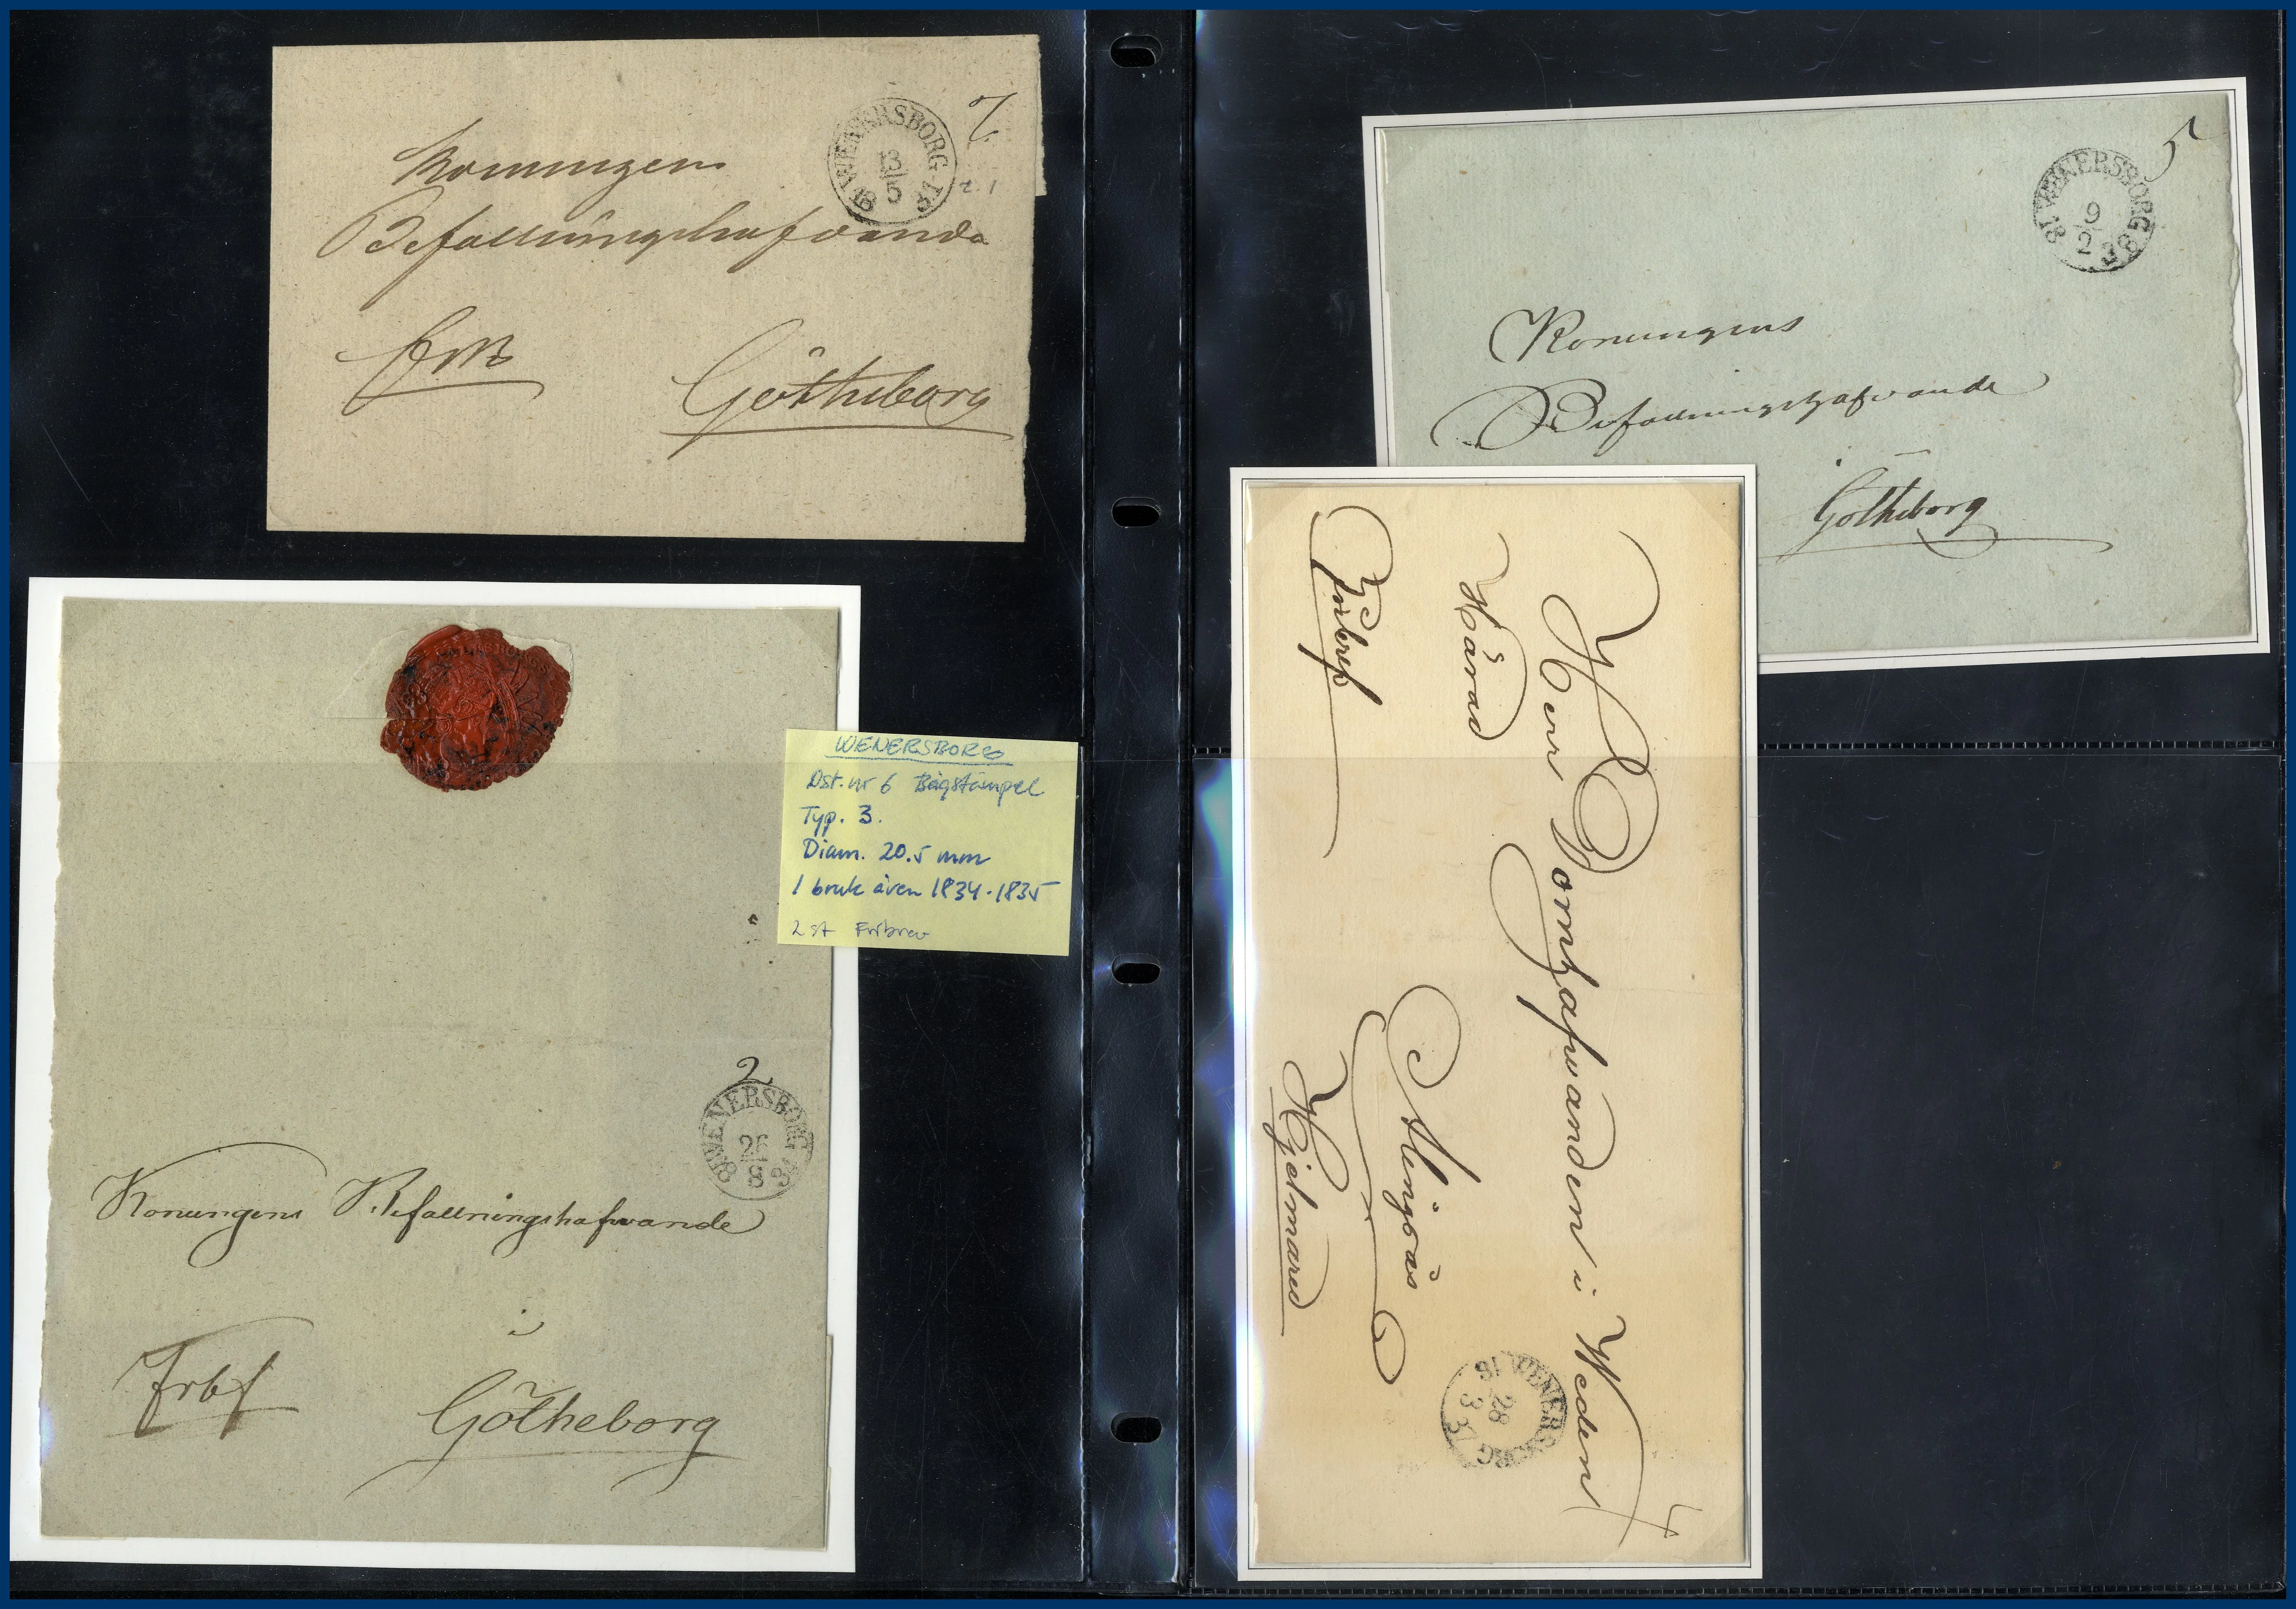 7
WENERSBORG
13
5
18
Konungens
Befallningshafvande
Götheborg
WENERSBORG
Dst. nr 6 Bågstämpel
Typ. 3.
Diam. 20.5 mm
I bruk även 1834-1835
2 st Fribrev
2
WENERSBORG
8
18
Konungens Befallningshafvande
i
Götheborg
Frbf
5
18 WENERSBORG 38
9
2
Konungens
Befallningshafvande
Götheborg
4
Herr Domhafvanden i Wedens
Härad
Alingsås
Fribref
Hjelmared
18 WENERSBORG
28
3